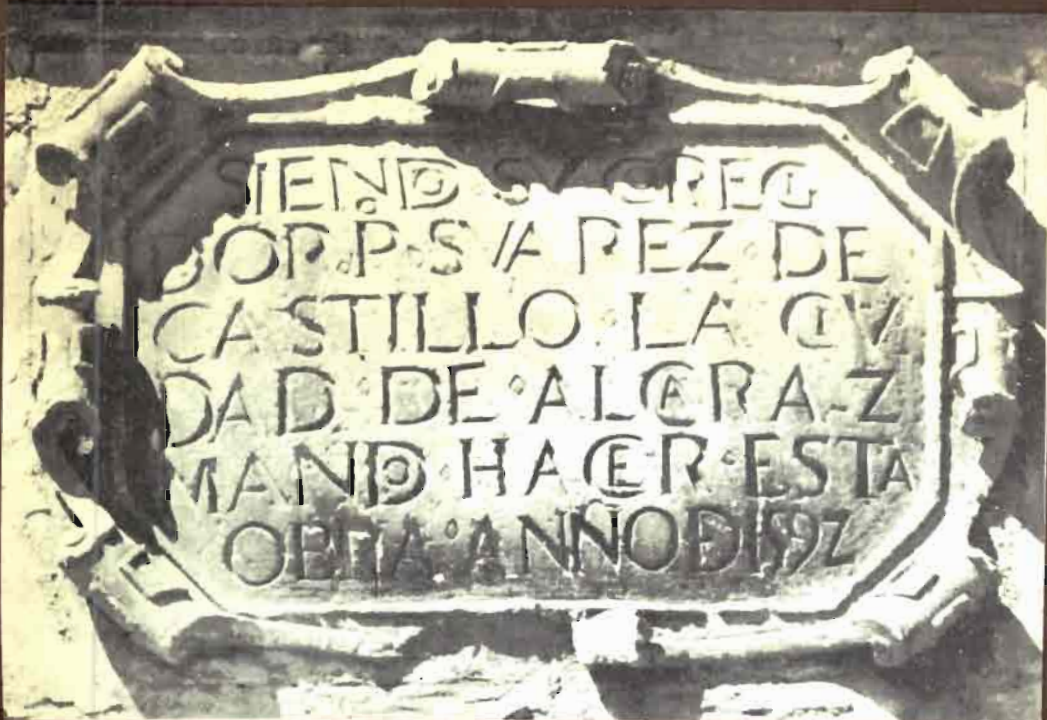 SIENDO SV COREGI
DOR·P·SVAREZ·DE
CASTILLO·LA CIV
DAD·DE·ALCARAZ
MANDO·HACER·ESTA
OBRA·ANÑO DE 1592